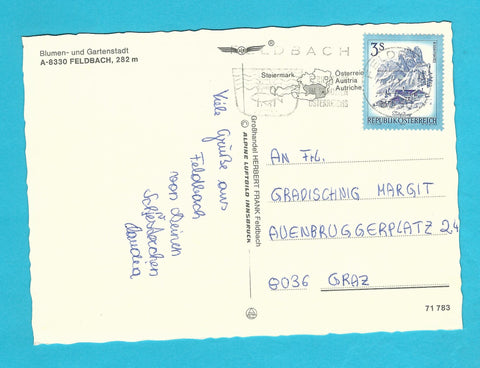 Blumen- und Gartenstadt
A-8330 FELDBACH, 282 m
®
FELDBACH
Steiermark
Österreich
Austria
Autriche
ÖSTERREICHS
3S
REPUBLIK ÖSTERREICH
Viele Grüße aus
Feldbach
von Deinem
Schwesterchen
Claudia
Großhandel HERBERT FRANK Feldbach
© ALPINE LUFTBILD INNSBRUCK
AN FrL.
GRADISCHNIG MARGIT
AUENBRUGGERPLATZ 24
8036 GRAZ
71 783